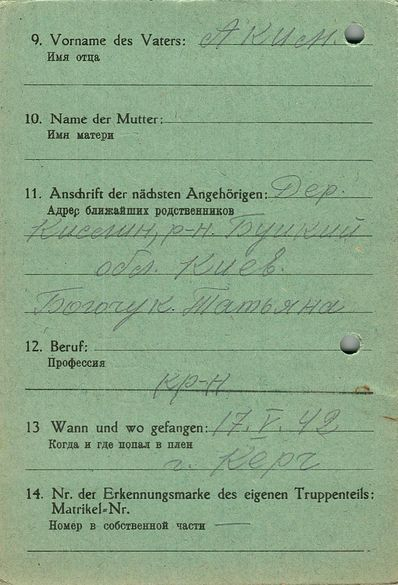 9. Vorname des Vaters: Аким.
Имя отца
10. Name der Mutter:
Имя матери
11. Anschrift der nächsten Angehörigen: Дер.
Адрес ближайших родственников
р-н. Буцкий
обл. Киев.
Богочук. Татьяна
12. Beruf:
Профессия
кр-н
13 Wann und wo gefangen: 17. V. 42
Когда и где попал в плен
г. Керч
14. Nr. der Erkennungsmarke des eigenen Truppenteils:
Matrikel-Nr.
Номер в собственной части —